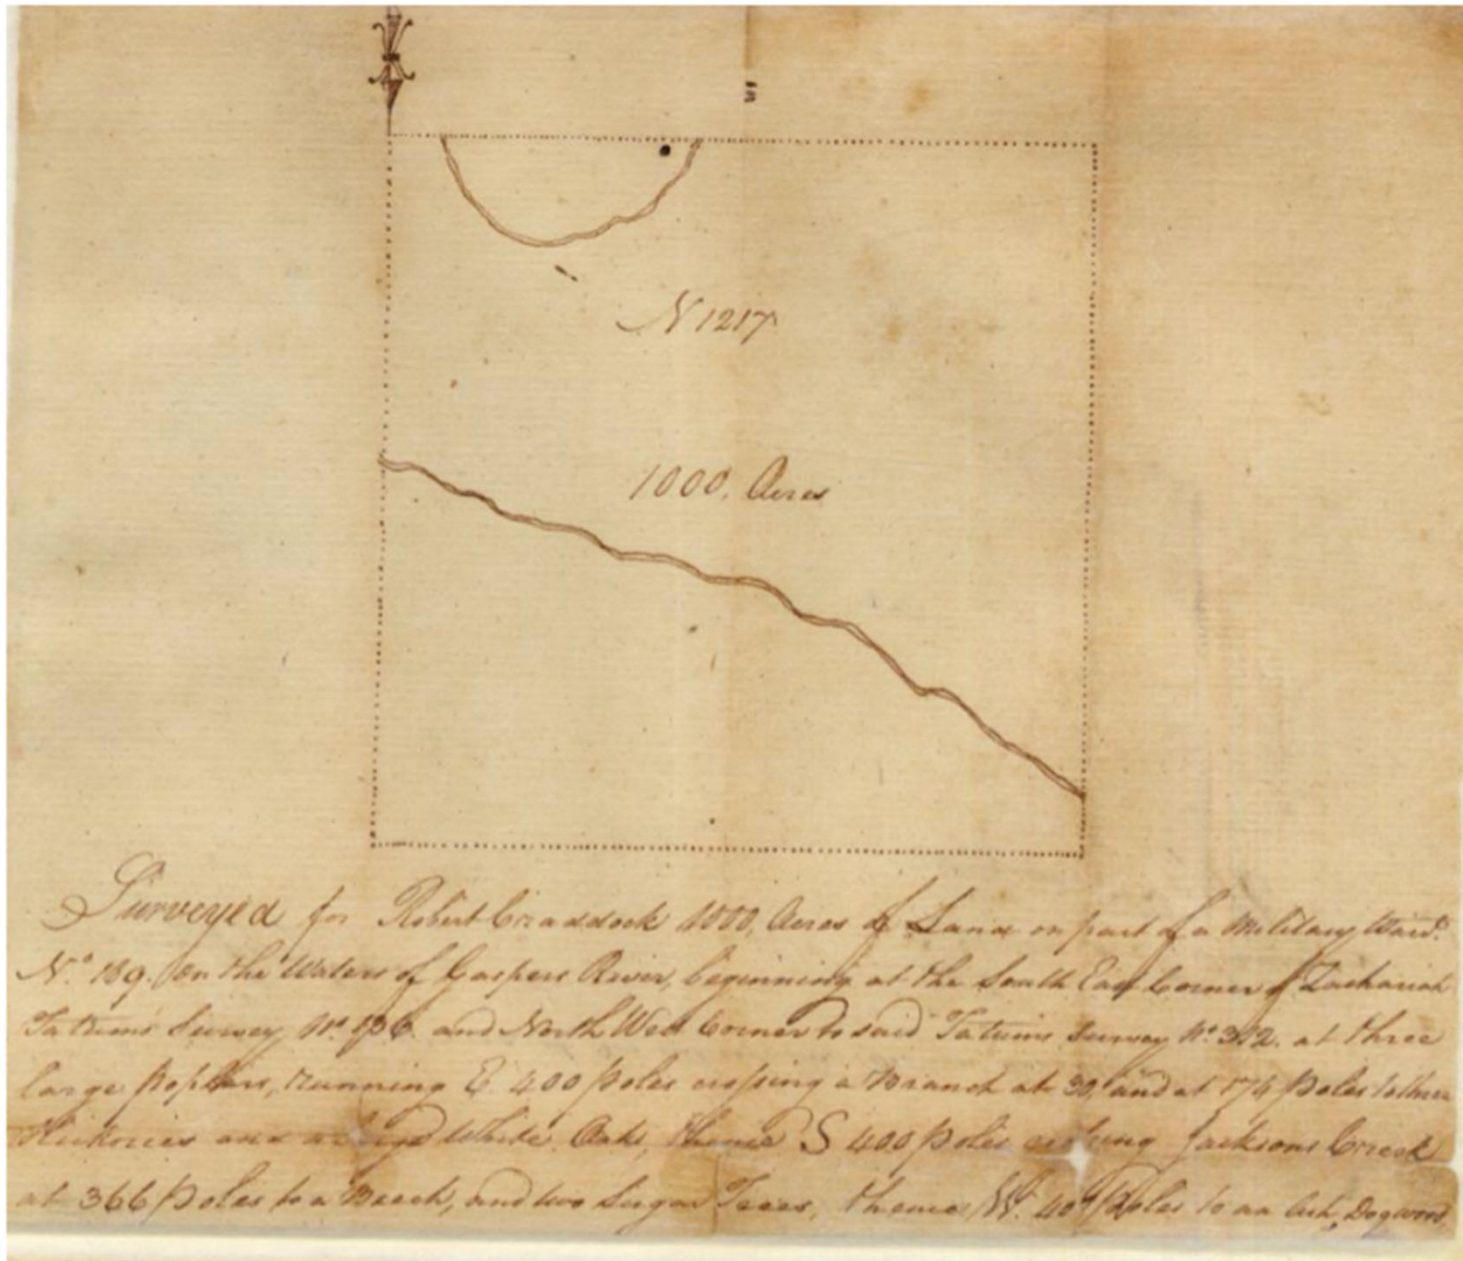 N 1217
1000. Acres
Surveyed for Robert Craddock 1000. Acres of Land on part of a Military Warrt.
No. 189. on the Waters of Gaspers River, beginning at the South East Corner of Zachariah
Tatums Survey No. and North West Corner to said Tatums Survey No. 312. at three
large Poplars, running E. 400 poles crossing a Branch at 30, and at 174 poles to three
Hickories and a White Oak, thence S 400 poles crossing Jacksons Creek
at 366 poles to a Beech, and two Sugar Trees, thence W. 400 poles to an Ash, Dogwood,